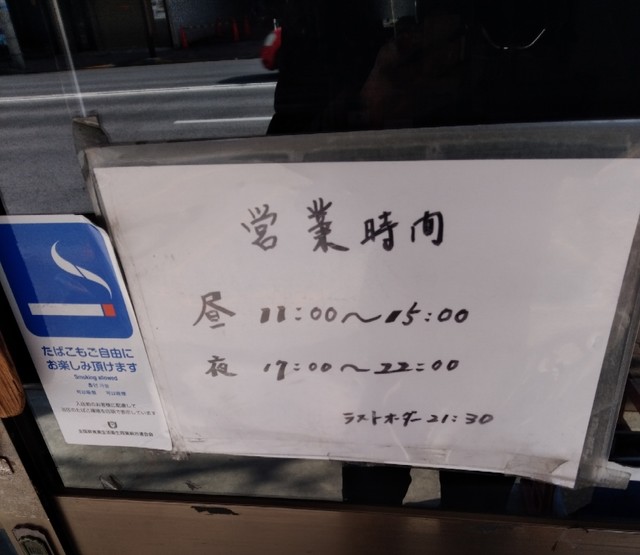 営業時間
昼 11:00〜15:00
夜 17:00〜22:00
ラストオーダー 21:30
たばこもご自由に
お楽しみ頂けます
Smoking allowed